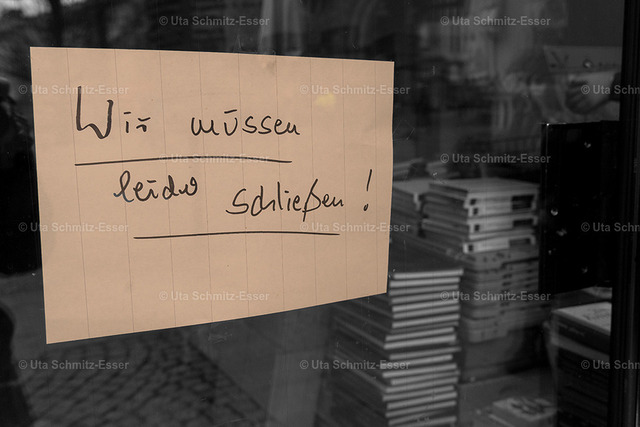 Wir müssen
leider schließen!
© Uta Schmitz-Esser
© Uta Schmitz-Esser
© Uta Schmitz-Esser
© Uta Schmitz-Esser
© Uta Schmitz-Esser
© Uta Schmitz-Esser
© Uta Schmitz-Esser
© Uta Schmitz-Esser
© Uta Schmitz-Esser
© Uta Schmitz-Esser
© Uta Schmitz-Esser
© Uta Schmitz-Esser
© Uta Schmitz-Esser
© Uta Schmitz-Esser